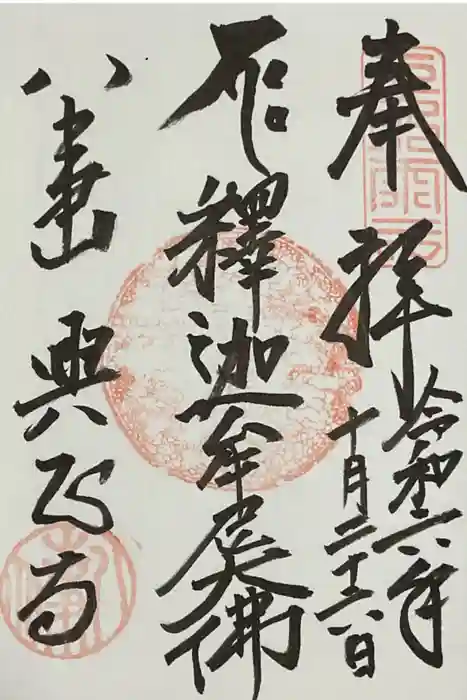 奉拝
令和六年
十月二十六日
釋迦牟尼佛
八事山 興正寺